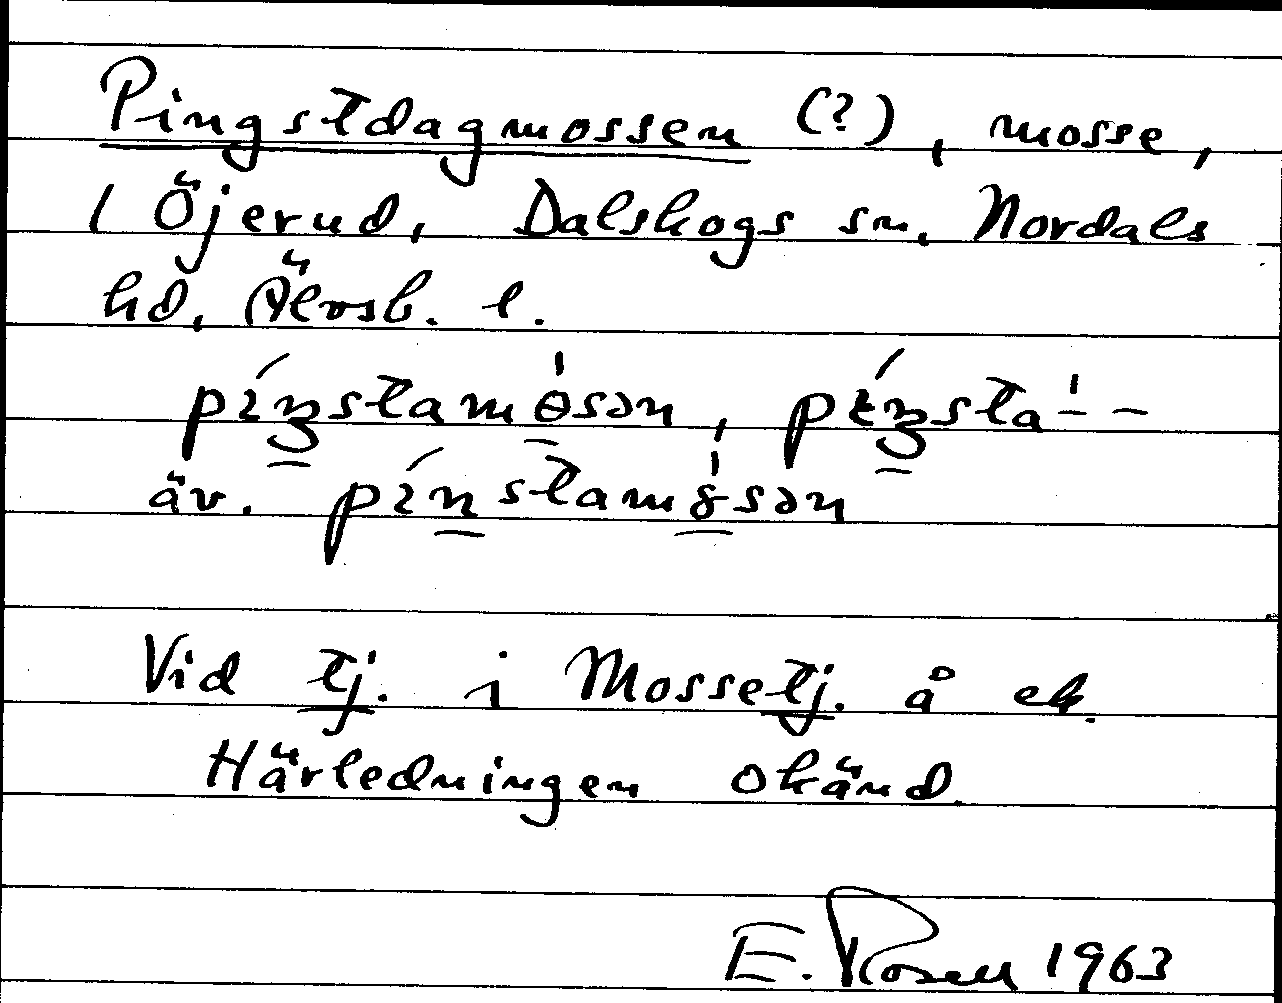 Pingstdagmossen (?), mosse,
1 Öjerud, Dalskogs sn, Nordals
hd, Älvsb. l.
píŋstamòsən, píŋsta-̀-
äv. pínstamòsən
Vid tj. i Mossetj. å ek.
Härledningen okänd.
E. Rosell 1963